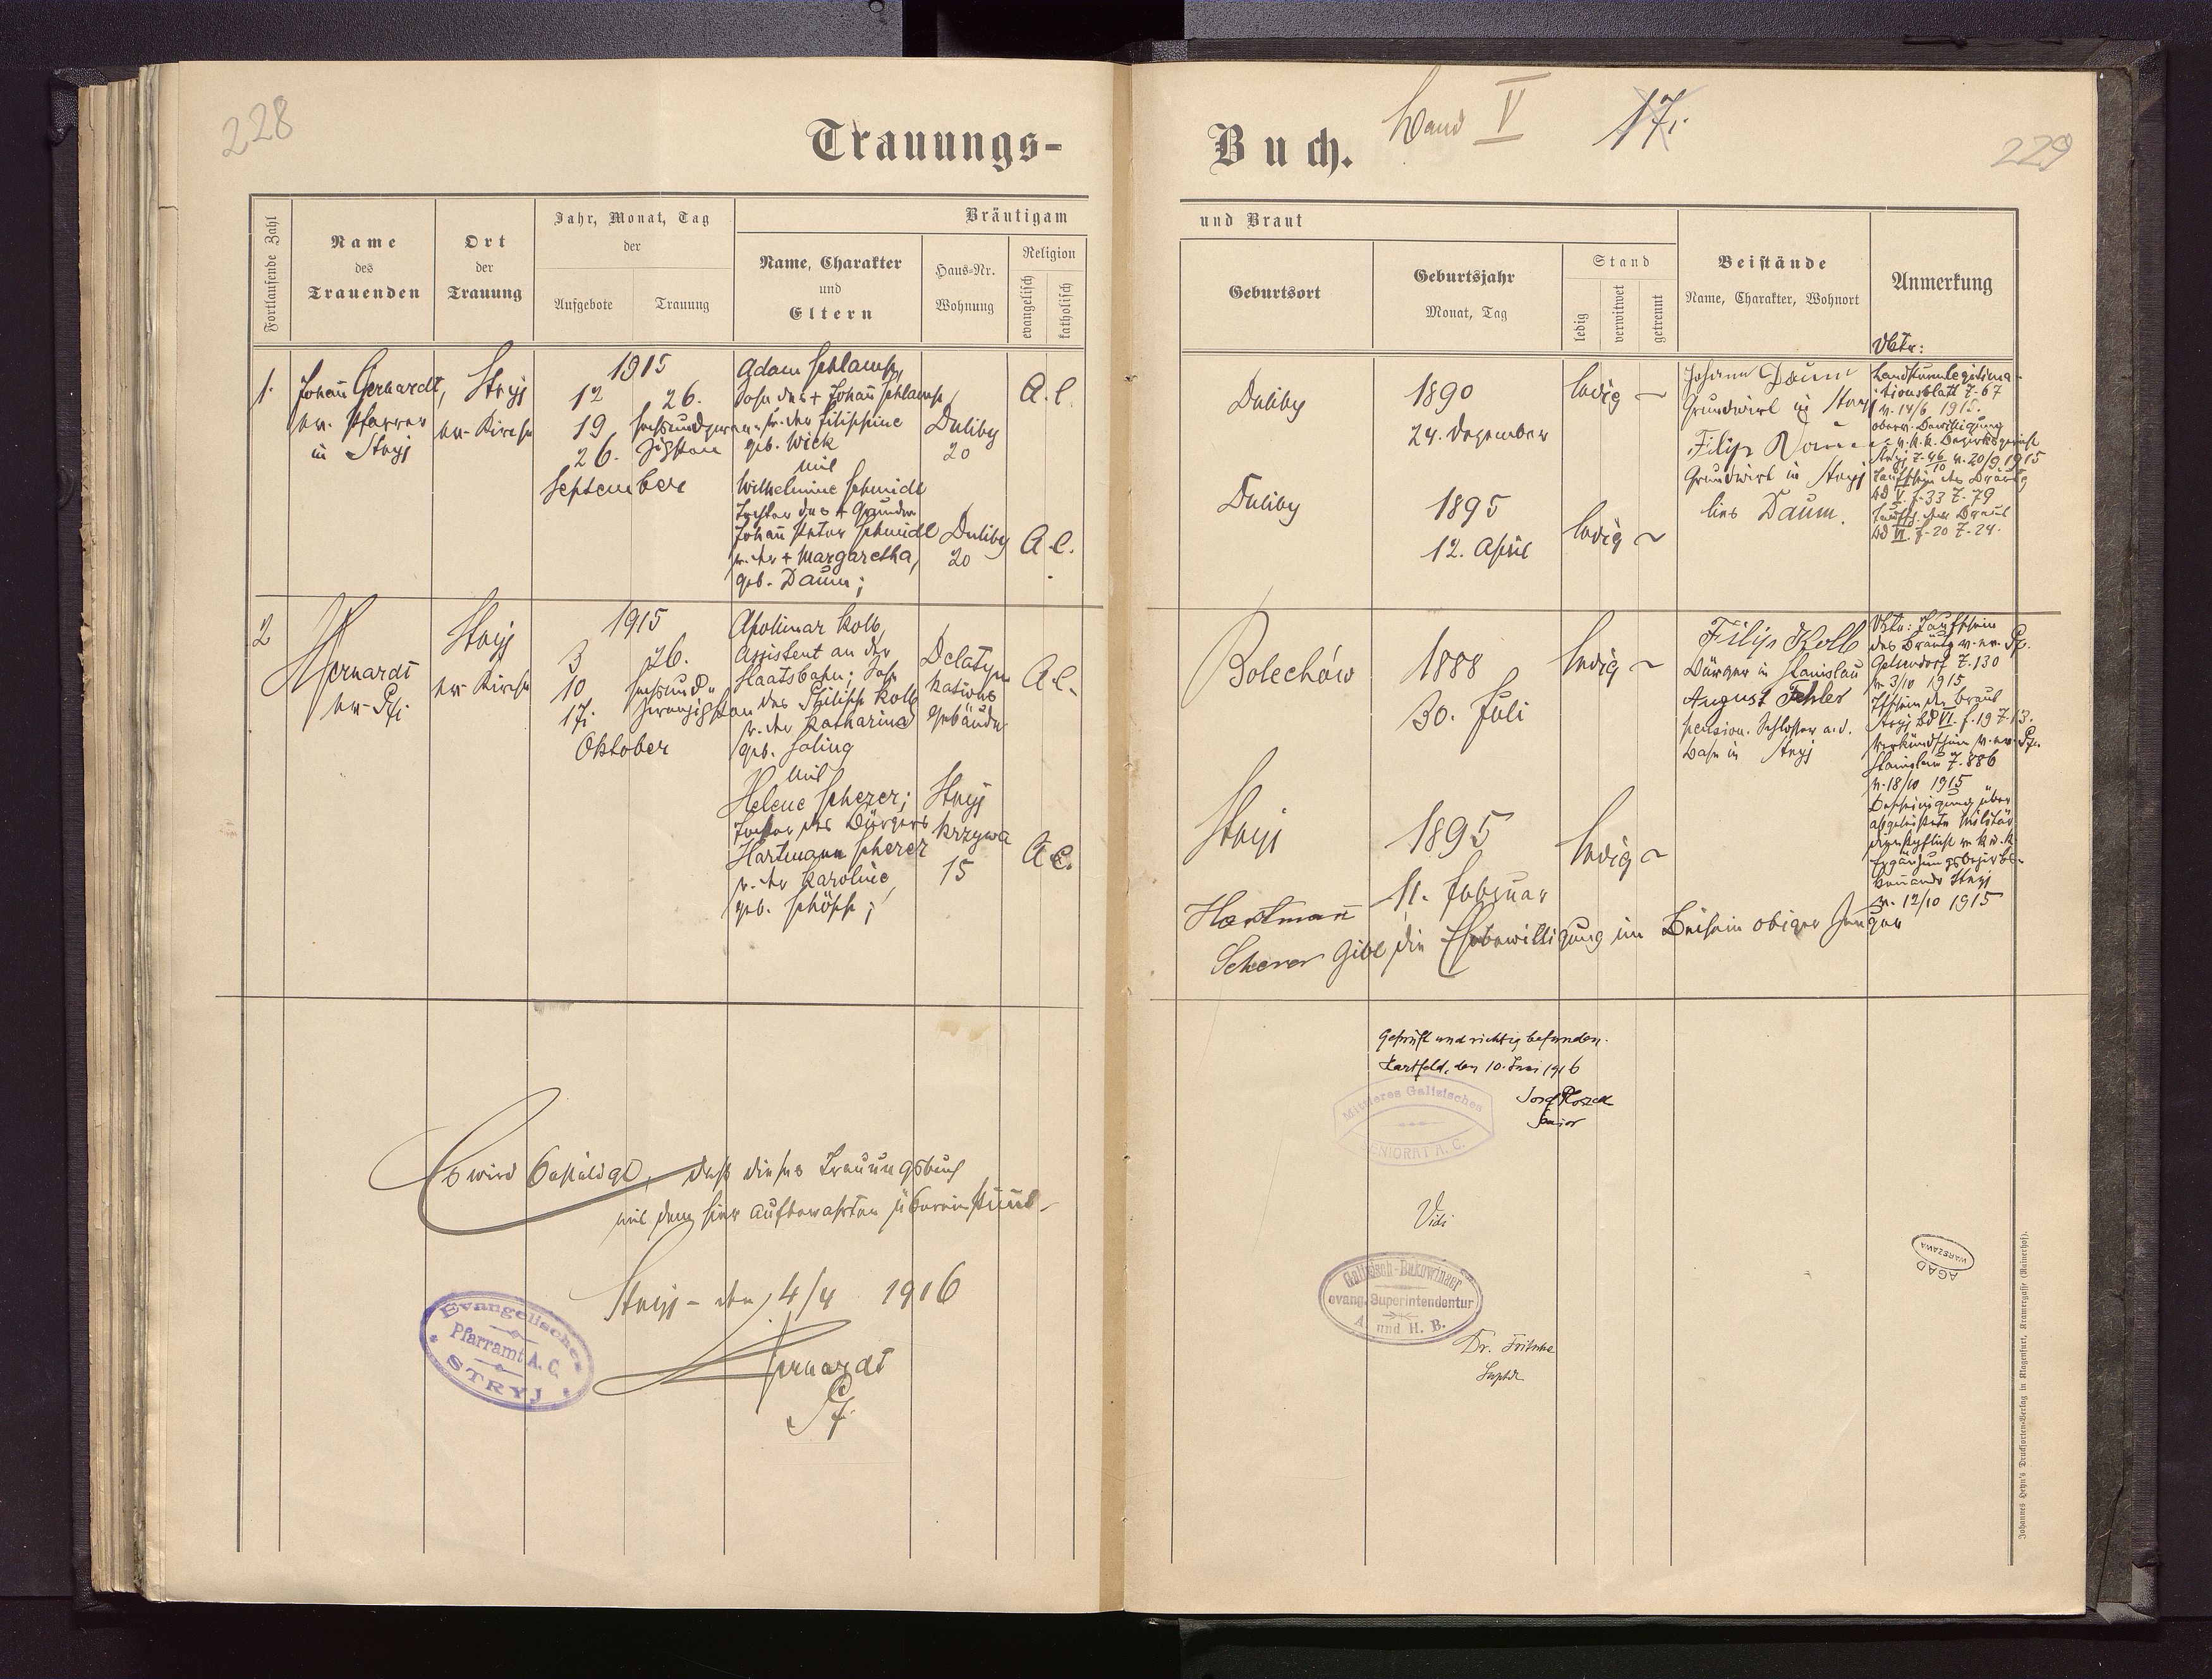 228
Trauungs-
Buch.
Band V
17.
229
Fortlaufende Zahl
Name
des
Trauenden
Ort
der
Trauung
Jahr, Monat, Tag
der
Aufgebote
Trauung
Bräutigam
Name, Charakter
und
Eltern
Haus-Nr.
Wohnung
Religion
evangelisch
katholisch
und Braut
Geburtsort
Geburtsjahr
Monat, Tag
Stand
ledig
verwitwet
getrennt
Beistände
Name, Charakter, Wohnort
Anmerkung
1.
Johañ Gerhardt,
ev. Pfarrer
in Stryj
Stryj
ev. Kirche
1915
12
19
26.
September
26.
sechsundzwan-
zigsten
Adam Schlamp,
Sohn des + Johañ Schlamp,
u. der Filippine
geb. Wick
mit
Wilhelmine Schmidt
Tochter des +
Johañ Peter Schmidt
u. der + Margaretha,
geb. Daum;
Duliby
20
Duliby
20
A.C.
A.C.
Duliby
1890
24. Dezember
ledig
Duliby
1895
12. April
ledig
Johann Daum
Grundwirt in Stryj
Filip
Grundwirt in Stryj
lies Daum.
Landsturmlegitima-
tionsblatt Z. 67
v. 14/6 1915.
oberv. Bewilligung
v. k. k. Bezirksgericht
Stryj v. 20/9 1915
Taufschein des Bräutig
Bd V. f. 33 Z. 79
Taufsch. der Braut
Bd VI. f. 20 Z. 24.
2
ev. Pf.
Stryj
ev. Kirche
1915
3
10
17.
Oktober
26.
sechsund-
zwanzigsten
Apolinar Kolb,
Assistent an der
Staatsbahn; Sohn
des Philipp Kolb
u. der Katharina
geb. Saling
mit
Helene Scherer;
Tochter des Bürgers
Hartmann Scherer
u. der Karoline,
geb. Schöpp;
Delatyn
Stations
gebäude
Stryj
Krzywa
15
A.C.
A.C.
Bolechów
1888
30. Juli
ledig
Stryj
1895
11. Februar
ledig
Filip Kolb
Bürger in Stanislau
August Fehler
pension. Schlosser a. d.
Bahn in Stryj
Taufschein
des Bräutig v. ev. Pf.
Gelsendorf Z. 130
v. 3/10 1915
Tfschein der Braut
Stryj Bd VI. f. 19 Z. 13.
Verkündschein v. ev. Pf.
Stanislau Z. 886
v. 18/10 1915
Bescheinigung über
abgeleistete Militär
dienstpflicht v. k. u. k.
Ergänzungsbezirks-
komando Stryj
v. 12/10 1915
Hartmañ
Scherer gibt die Ehebewilligung im Beisein obiger Zeugen
Geprüft und richtig befunden.
Hartfeld, den 10. Juni 1916
Senior
Mittleres Galizisches
SENIORAT A. C.
Es wird bestätigt, daß dieses Trauungsbuch
mit dem hier aufbewahrten übereinstimt.
Stryj - den 4/4 1916
Pf.
Evangelisches
Pfarramt A. C.
STRYJ
Vidi
Galizisch-Bukowinaer
evang. Superintendentur
A. und H. B.
Dr. Fritsche
Suptdt
AGAD
WARSZAWA
Johannes Heyn's Drucksorten-Verlag in Klagenfurt, Kramergasse (Rainerhof).